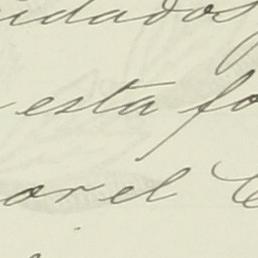 idados
esta fo
or el C